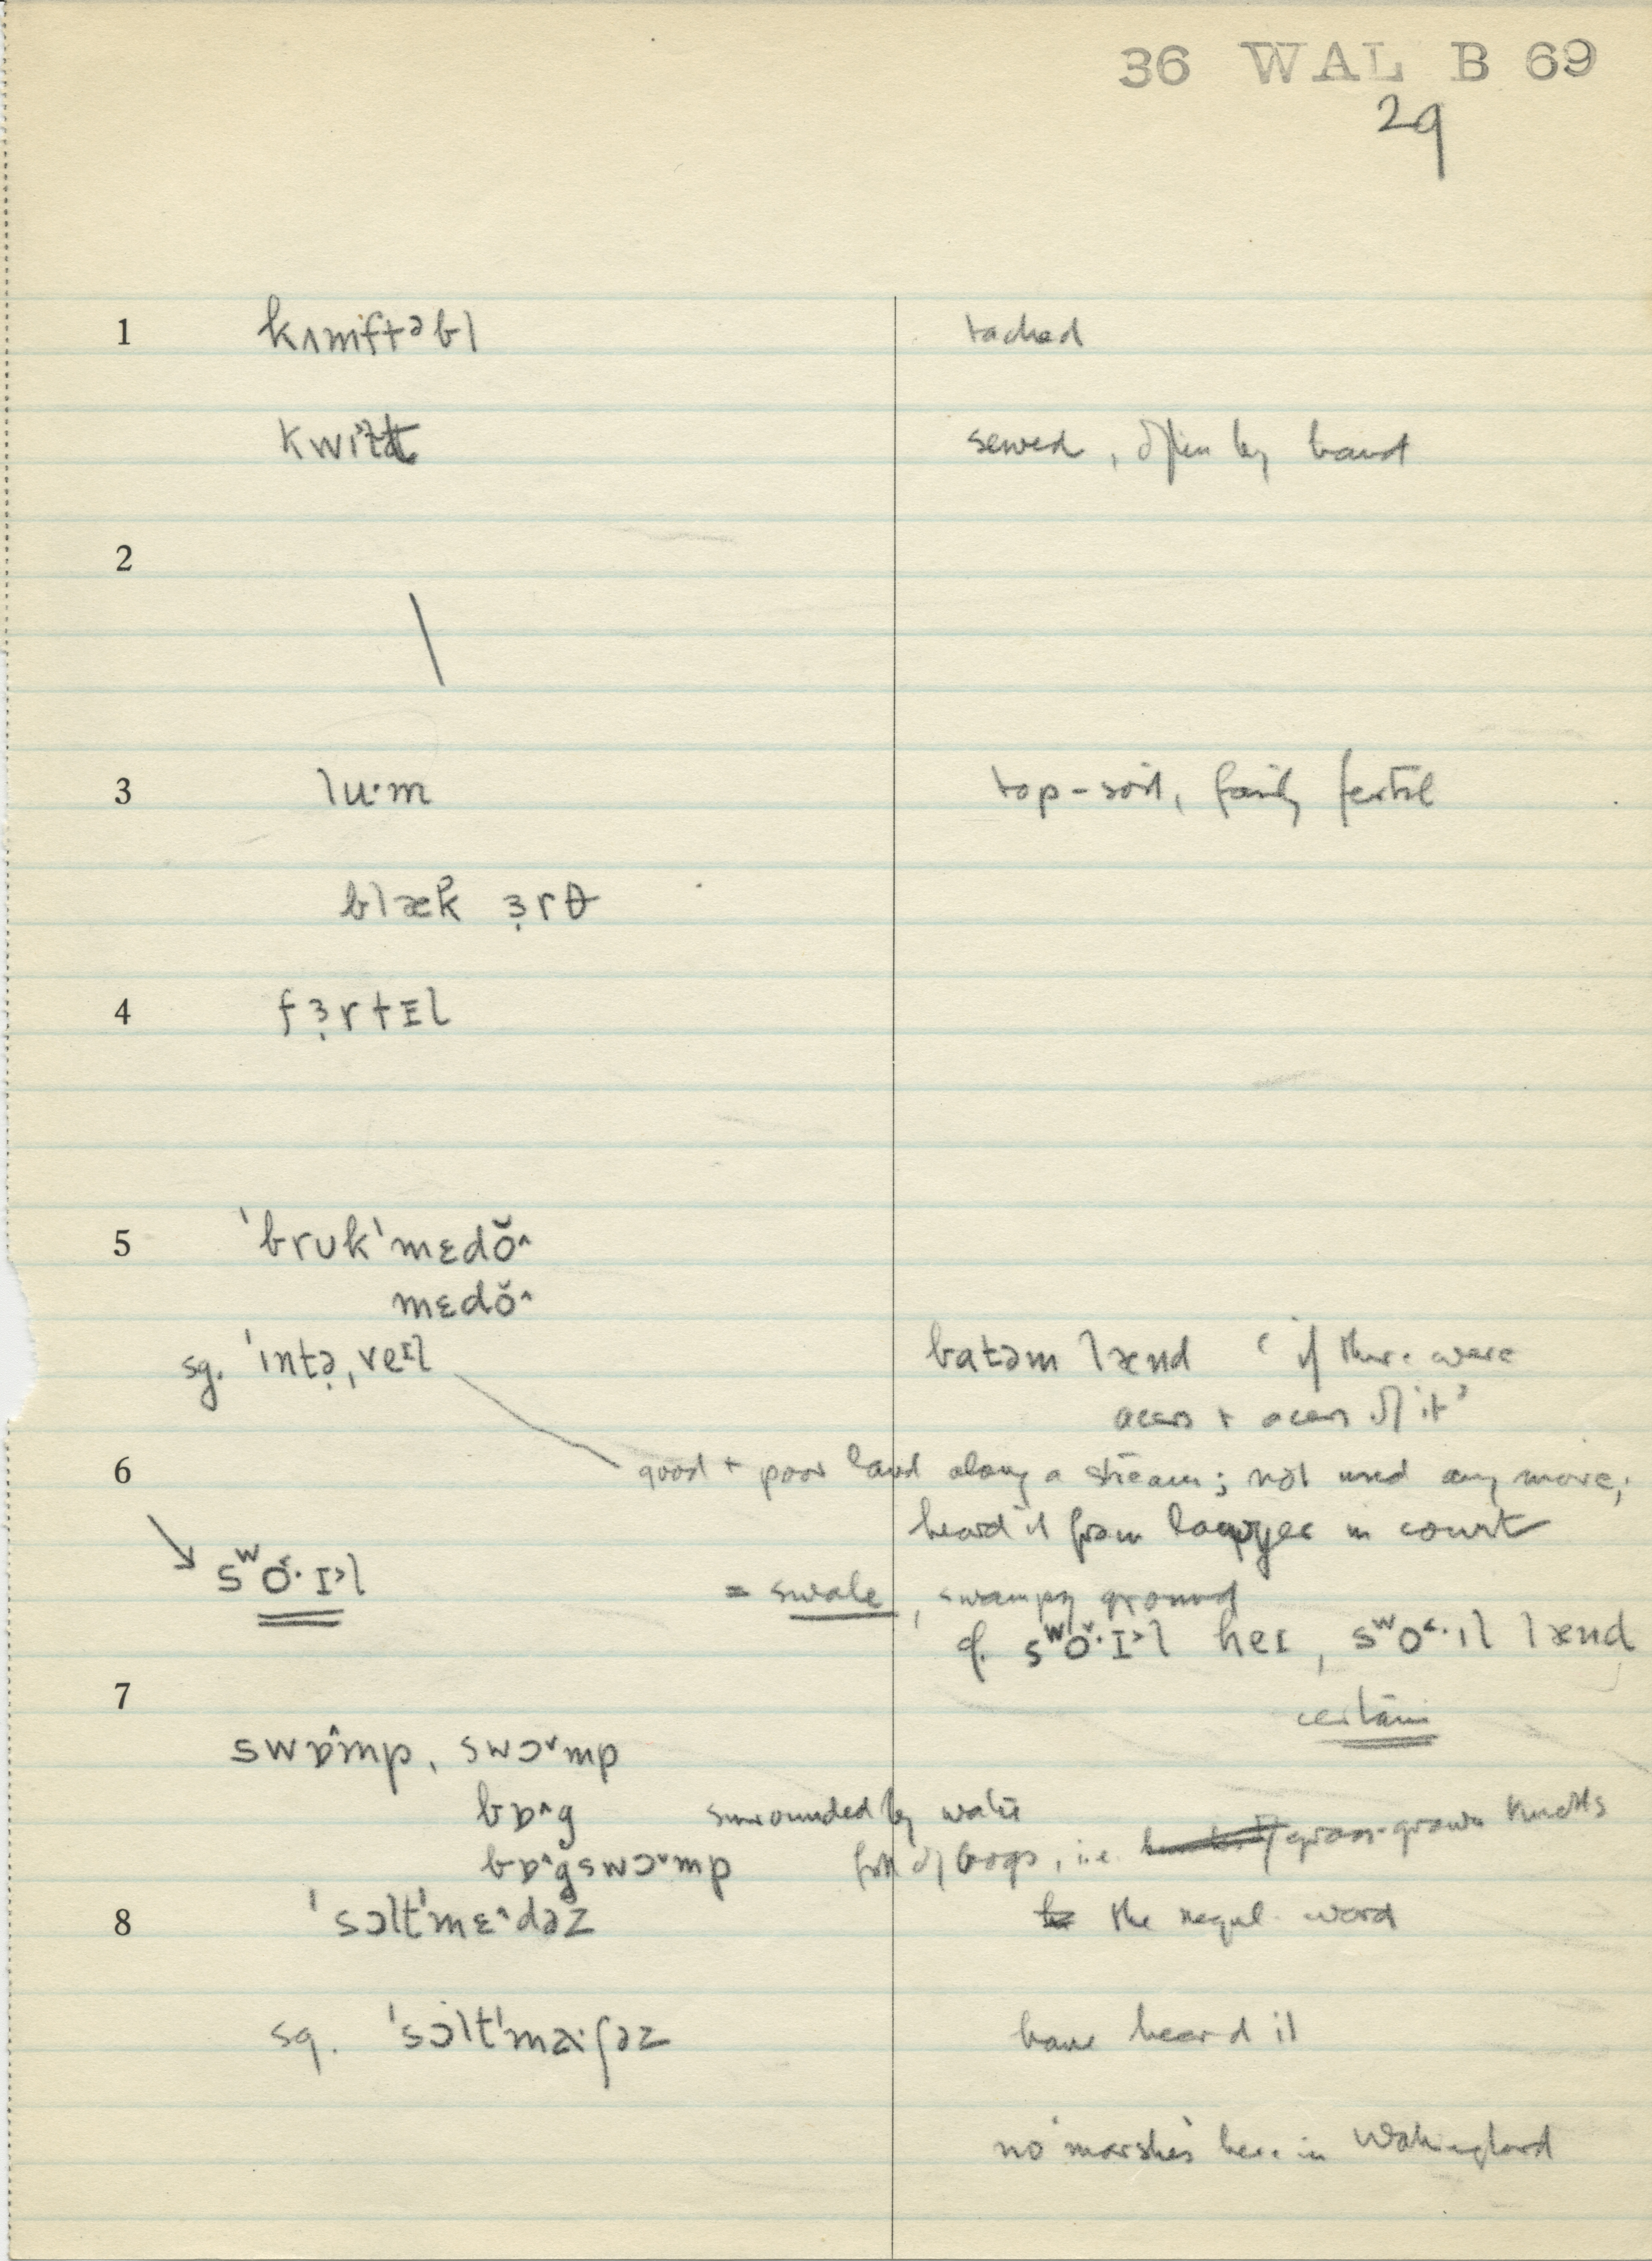 36 WAL B 69
29
1 kʌmftəbl tacked
kwɪlt sewed, often by hand
2
3 lu·m top-soil, fairly fertil
blæk ɜ̣rθ
4 fɜ̣rtɪl
5 ˈbrukˈmɛdŏ^
mɛdŏ^
sg. ˈɪntə̣ˌveɪl batəm lænd ‘if there were
acres + acres of it’
6 good + poor land along a stream; not used any more;
heard it from lawyer in court
sʷo˅·ɪ˃l = swale, swampy ground
cf. sʷo˅·ɪ˃l heɪ, sʷo˂·ɪl lænd
7 certain
swɒ^mp, swɔ˅mp
bɒ^g surrounded by water
bɒ^gswɔ˅mp full of bogs, i.e. grass-grown knolls
8 ˈsɔltˈmɛ^dəz the regul. word
sg. ˈsɔltˈma·ʃəz have heard it
no marshes here in Wallingford